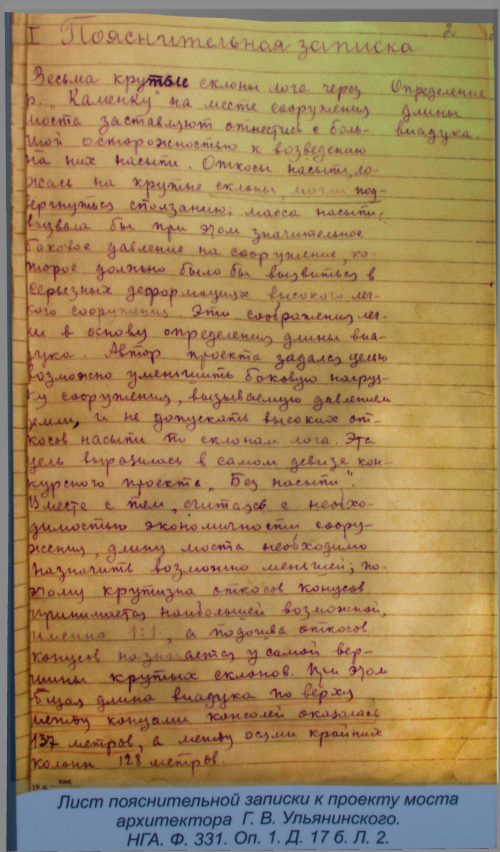 2
I Пояснительная записка
Определение
длины
виадука.
Весьма крутые склоны лога через
р. „Каменку" на месте сооружения
моста заставляют отнестись с боль-
шой осторожностью к возведению
на них насыпи. Откосы насыпи, ло-
жась на крутые склоны, могли под-
вергнуться сползанию; масса насыпи
вызвала бы при этом значительное
боковое давление на сооружение, ко-
торое должно было бы вызвиться в
серьезных деформациях высокого лег-
кого сооружения. Эти соображения лег-
ли в основу определения длины виа-
дука. Автор проекта задался целью
возможно уменьшить боковую нагруз-
ку сооружения, вызываемую давлением
земли, и не допускать высоких от-
косов насыпи по склонам лога. Эта
цель выразилась в самом девизе кон-
курсного проекта „Без насыпи".
Вместе с тем, считаясь с необхо-
димостью экономичности соору-
жения, длину моста необходимо
назначить возможно меньшей; по-
этому крутизна откосов конусов
принимается наибольшей возможной,
именно 1:1, а подошва откосов
конусов назначается у самой вер-
шины крутых склонов. При этом
общая длина виадука по верху
между концами консолей оказалась
137 метров, а между осями крайних
колонн 128 метров.
Лист пояснительной записки к проекту моста
архитектора Г. В. Ульянинского.
НГА. Ф. 331. Оп. 1. Д. 17 б. Л. 2.